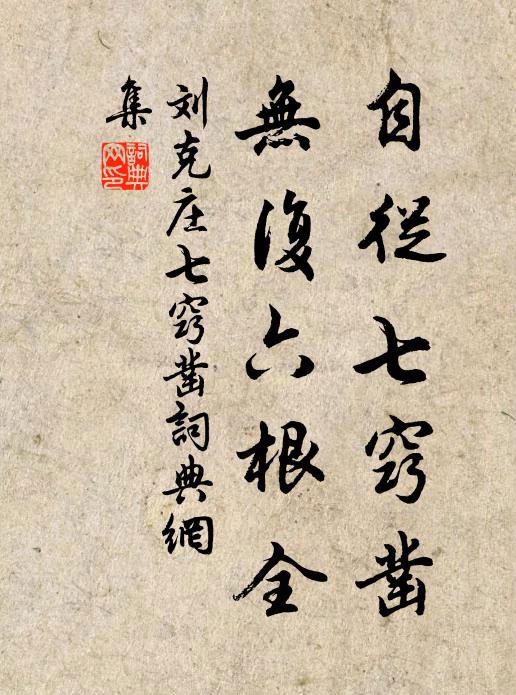 自從七窍凿
無復六根全
刘克庄七窍凿詞典網
集
詞典
网印